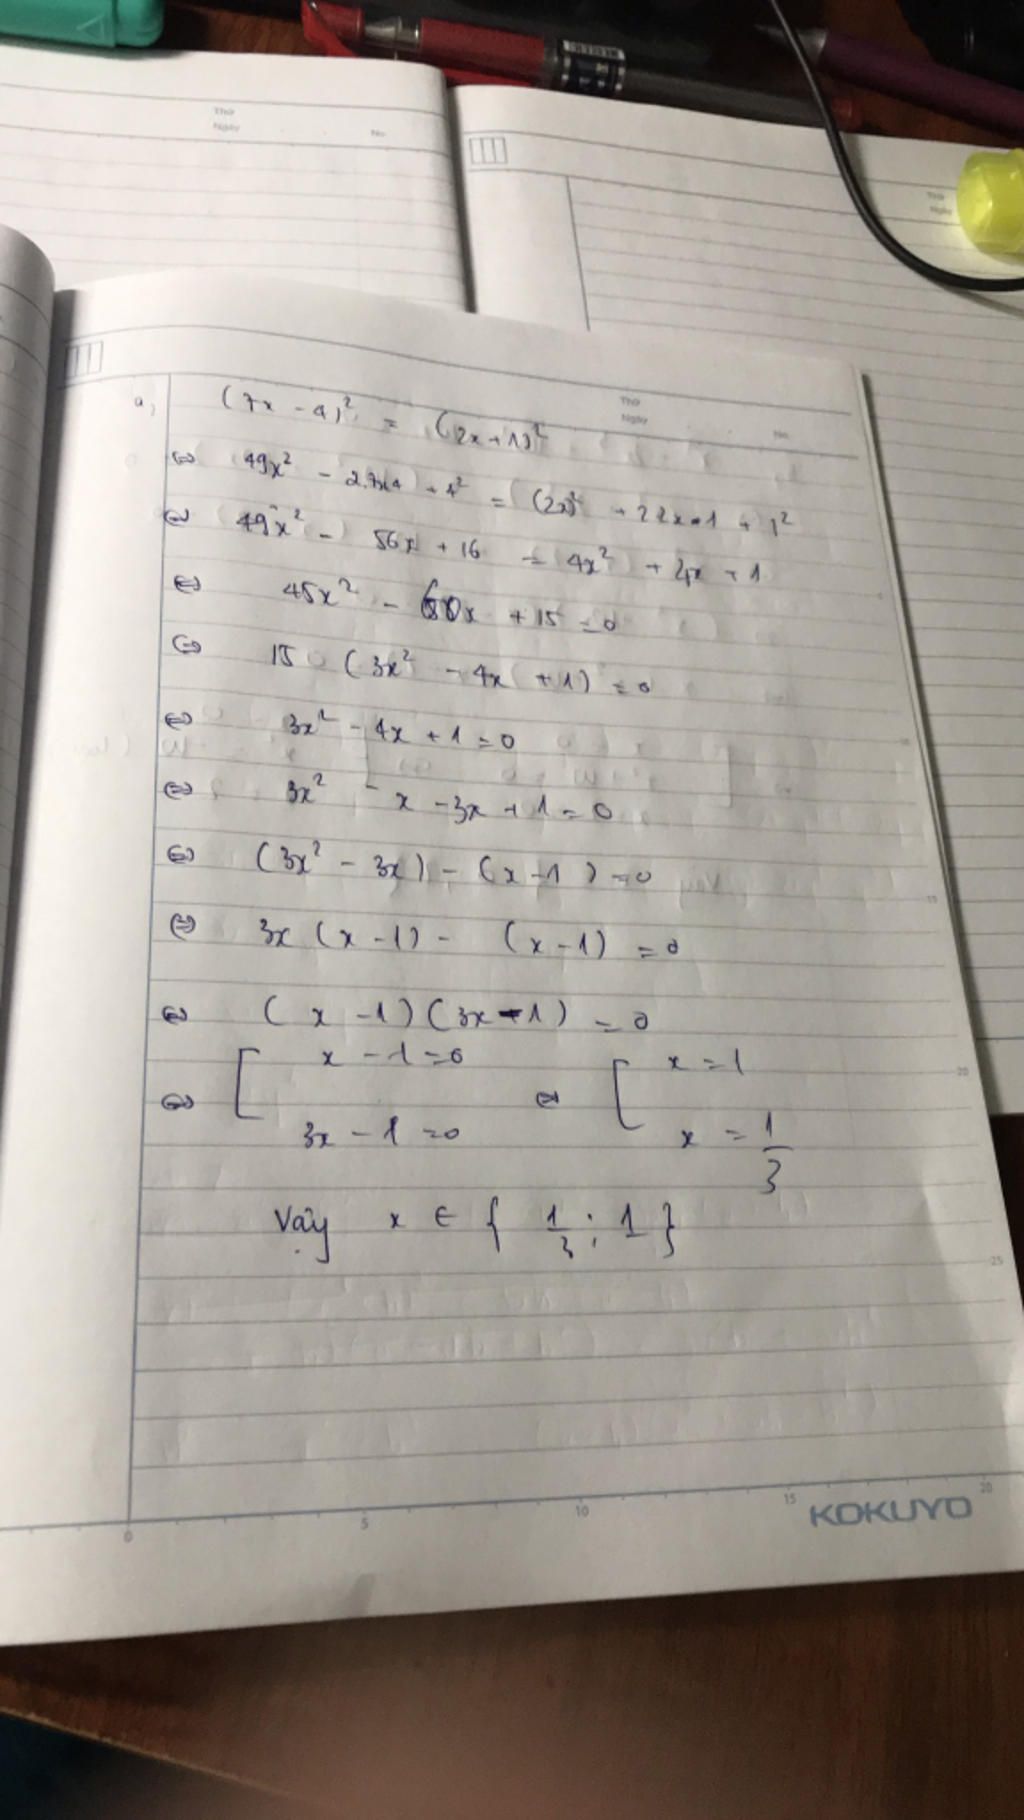 Thứ
Ngày
No.
Thứ
Ngày
Thứ
Ngày
No.
a,
(7x - 4)² = (2x+1)²
⇔ 49x² - 2.7x.4 + 4² = (2x)² + 2.2x.1 + 1²
⇔ 49x² - 56x + 16 = 4x² + 4x + 1
⇔ 45x² - 60x + 15 = 0
⇔ 15 (3x² - 4x + 1) = 0
⇔ 3x² - 4x + 1 = 0
⇔ 3x² - x - 3x + 1 = 0
⇔ (3x² - 3x) - (x - 1) = 0
⇔ 3x (x - 1) - (x - 1) = 0
⇔ (x - 1)(3x - 1) = 0
⇔ [ x - 1 = 0 ⇔ [ x = 1
3x - 1 = 0 x = 1/3
Vậy x ∈ { 1/3 ; 1 }
0 5 10 15 20
KOKUYO